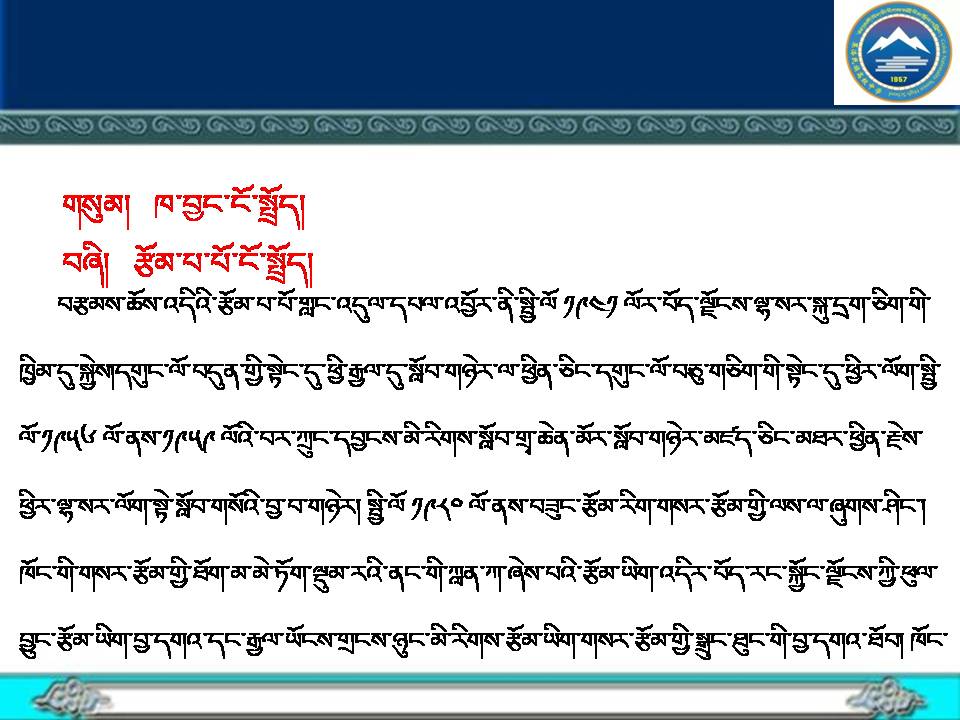 གསུམ། ཁ་བྱང་ངོ་སྤྲོད།
བཞི། རྩོམ་པ་པོ་ངོ་སྤྲོད།
བརྩམས་ཆོས་འདིའི་རྩོམ་པ་པོ་གླང་འདུལ་དཔལ་འབྱོར་ནི་སྤྱི་ལོ ༡༩༤༡ ལོར་བོད་ལྗོངས་ལྷ་སར་སྐུ་དྲག་ཅིག་གི་
ཁྱིམ་དུ་སྐྱེས།དགུང་ལོ་བདུན་གྱི་སྟེང་དུ་ཕྱི་རྒྱལ་དུ་སློབ་གཉེར་ལ་ཕྱིན་ཅིང་དགུང་ལོ་བཅུ་གཅིག་གི་སྟེང་དུ་ཕྱིར་ལོག་སྤྱི་
ལོ་༡༩༥༦ ལོ་ནས་༡༩༥༩ ལོའི་བར་ཀྲུང་དབྱངས་མི་རིགས་སློབ་གྲྭ་ཆེན་མོར་སློབ་གཉེར་མཛད་ཅིང་མཐར་ཕྱིན་རྗེས་
ཕྱིར་ལྷ་སར་ལོག་སྟེ་སློབ་གསོའི་བྱ་བ་གཉེར། སྤྱི་ལོ ༡༩༨༠ ལོ་ནས་བཟུང་རྩོམ་རིག་གསར་རྩོམ་གྱི་ལས་ལ་ཞུགས་ཤིང་།
ཁོང་གི་གསར་རྩོམ་གྱི་ཐོག་མ་མེ་ཏོག་ལྡུམ་རའི་ནང་གི་ཀླན་ཀ་ཞེས་པའི་རྩོམ་ཡིག་འདིར་བོད་རང་སྐྱོང་ལྗོངས་ཀྱི་ཕུལ་
བྱུང་རྩོམ་ཡིག་བྱ་དགའ་དང་རྒྱལ་ཡོངས་གྲངས་ཉུང་མི་རིགས་རྩོམ་ཡིག་གསར་རྩོམ་གྱི་སྒྲུང་ཐུང་གི་བྱ་དགའ་ཐོབ། ཁོང་
1957